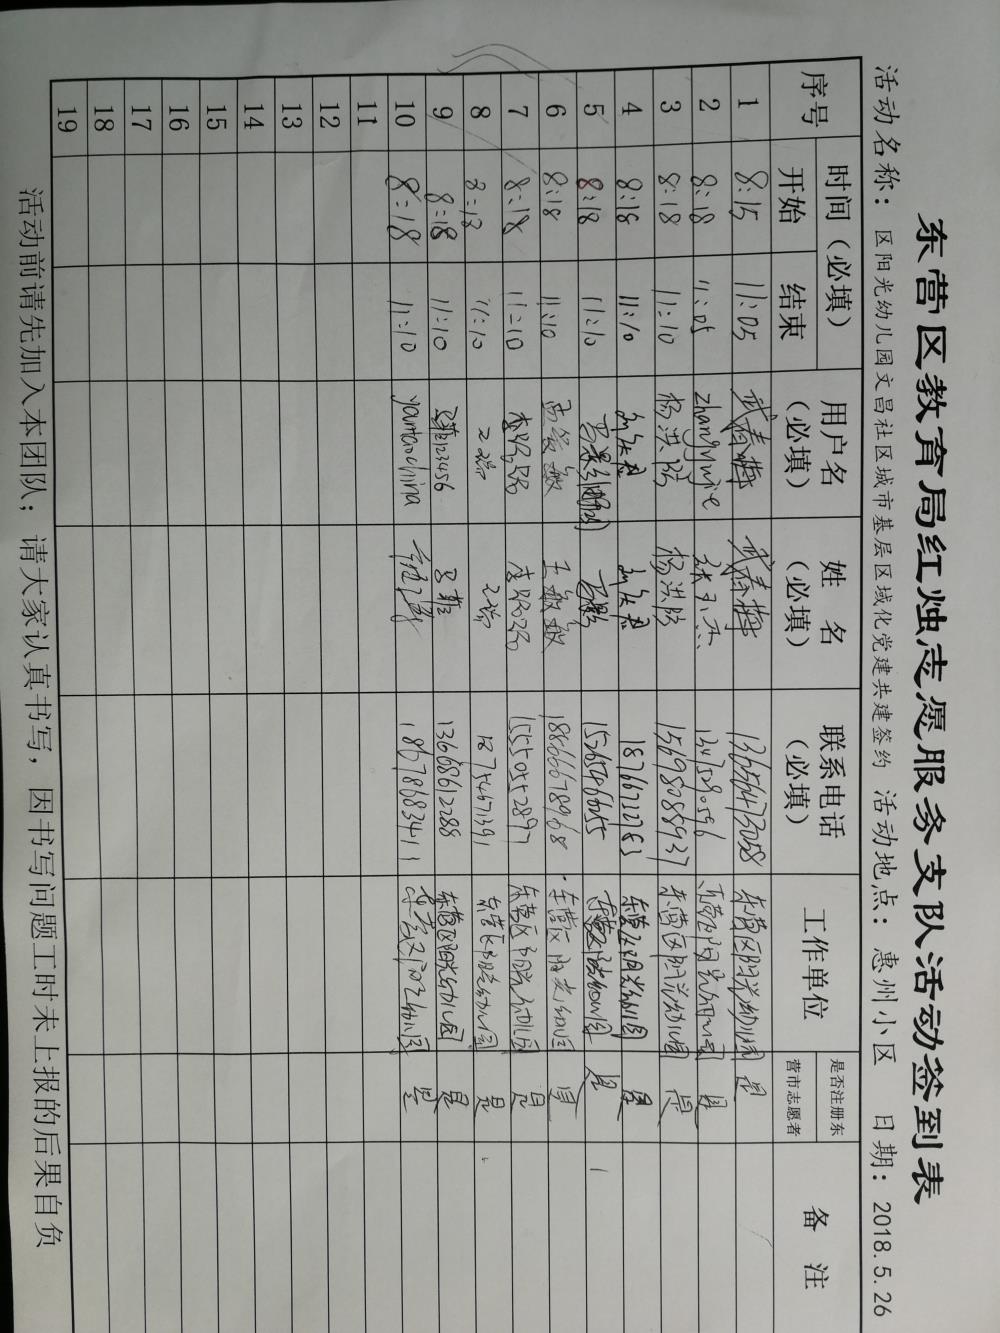 东营区教育局红烛志愿服务支队活动签到表
活动名称：区阳光幼儿园文昌社区城市基层区域化党建共建签约 活动地点：惠州小区 日期：2018.5.26
序号 时间（必填） 用户名（必填） 姓 名（必填） 联系电话（必填） 工作单位 是否注册东营市志愿者 备 注
开始 结束
1 8:15 11:05 武春梅 武春梅 13656473058 东营区阳光幼儿园 是
2 8:18 11:05 zhangyujie 东营区阳光幼儿园 是
3 8:18 11:10 杨洪 杨洪 15698088937 东营区阳光幼儿园 是
4 8:18 11:10 18766712783 东营区阳光幼儿园 是
5 8:18 11:10 东营区 幼儿园 是
6 8:18 11:10 敏 王敏敏 18866678968 东营区阳光幼儿园 是
7 8:18 11:10 李 李 15550552897 东营区阳光幼儿园 是
8 8:18 11:10 18754671391 东营区阳光幼儿园 是
9 8:18 11:10 123456 13668612288 东营区阳光幼儿园 是
10 8:18 11:10 18678683411 幼儿园 是
11
12
13
14
15
16
17
18
19
活动前请先加入本团队；请大家认真书写，因书写问题工时未上报的后果自负